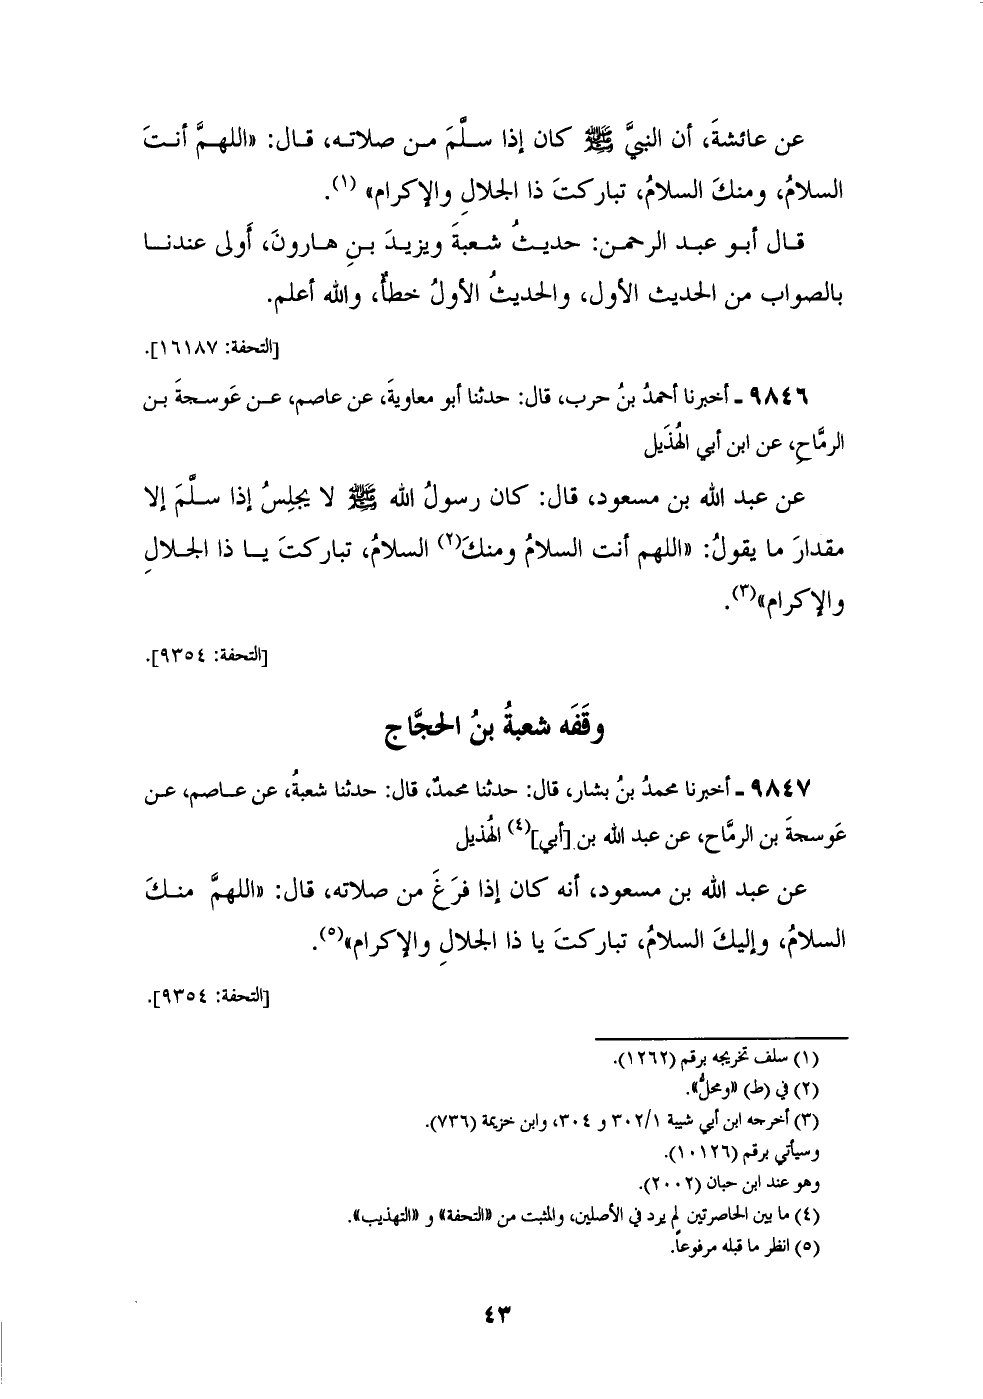 عن عائشةَ، أن النبيَّ ﷺ كان إذا سلَّمَ من صلاته، قال: «اللهمَّ أنتَ
السلامُ، ومنكَ السلامُ، تباركتَ ذا الجلالِ والإكرام» (١).
قال أبو عبد الرحمن: حديثُ شعبةَ ويزيدَ بنِ هارونَ، أَولى عندنا
بالصواب من الحديث الأول، والحديثُ الأولُ خطأٌ، والله أعلم.
[التحفة: ١٦١٨٧].
٩٨٤٦ ـ أخبرنا أحمدُ بنُ حرب، قال: حدثنا أبو معاويةَ، عن عاصم، عن عَوسجةَ بن
الرمَّاحِ، عن ابن أبي الهُذَيل
عن عبد الله بن مسعود، قال: كان رسولُ الله ﷺ لا يجلِسُ إذا سلَّمَ إلا
مقدارَ ما يقولُ: «اللهم أنت السلامُ ومنكَ(٢) السلامُ، تباركتَ يا ذا الجلالِ
والإكرام»(٣).
[التحفة: ٩٣٥٤].
وقَفَه شعبةُ بنُ الحجَّاج
٩٨٤٧ ـ أخبرنا محمدُ بنُ بشار، قال: حدثنا محمدٌ، قال: حدثنا شعبةُ، عن عاصم، عن
عَوسجةَ بن الرمَّاح، عن عبد الله بن [أبي](٤) الهُذيل
عن عبد الله بن مسعود، أنه كان إذا فرَغَ من صلاته، قال: «اللهمَّ منكَ
السلامُ، وإليكَ السلامُ، تباركتَ يا ذا الجلالِ والإكرام»(٥).
[التحفة: ٩٣٥٤].
(١) سلف تخريجه برقم (١٢٦٢).
(٢) في (ط) «ومحلُّ».
(٣) أخرجه ابن أبي شيبة ٣٠٢/١ و ٣٠٤، وابن خزيمة (٧٣٦).
وسيأتي برقم (١٠١٢٦).
وهو عند ابن حبان (٢٠٠٢).
(٤) ما بين الحاصرتين لم يرد في الأصلين، والمثبت من «التحفة» و «التهذيب».
(٥) انظر ما قبله مرفوعاً.
٤٣